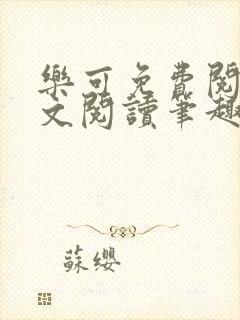 樂可免費閱
文閱讀筆趣
蘇纓